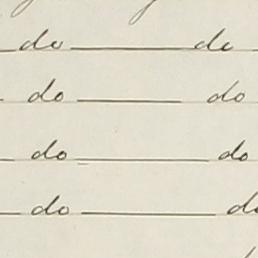 do do
do do
do do
do do